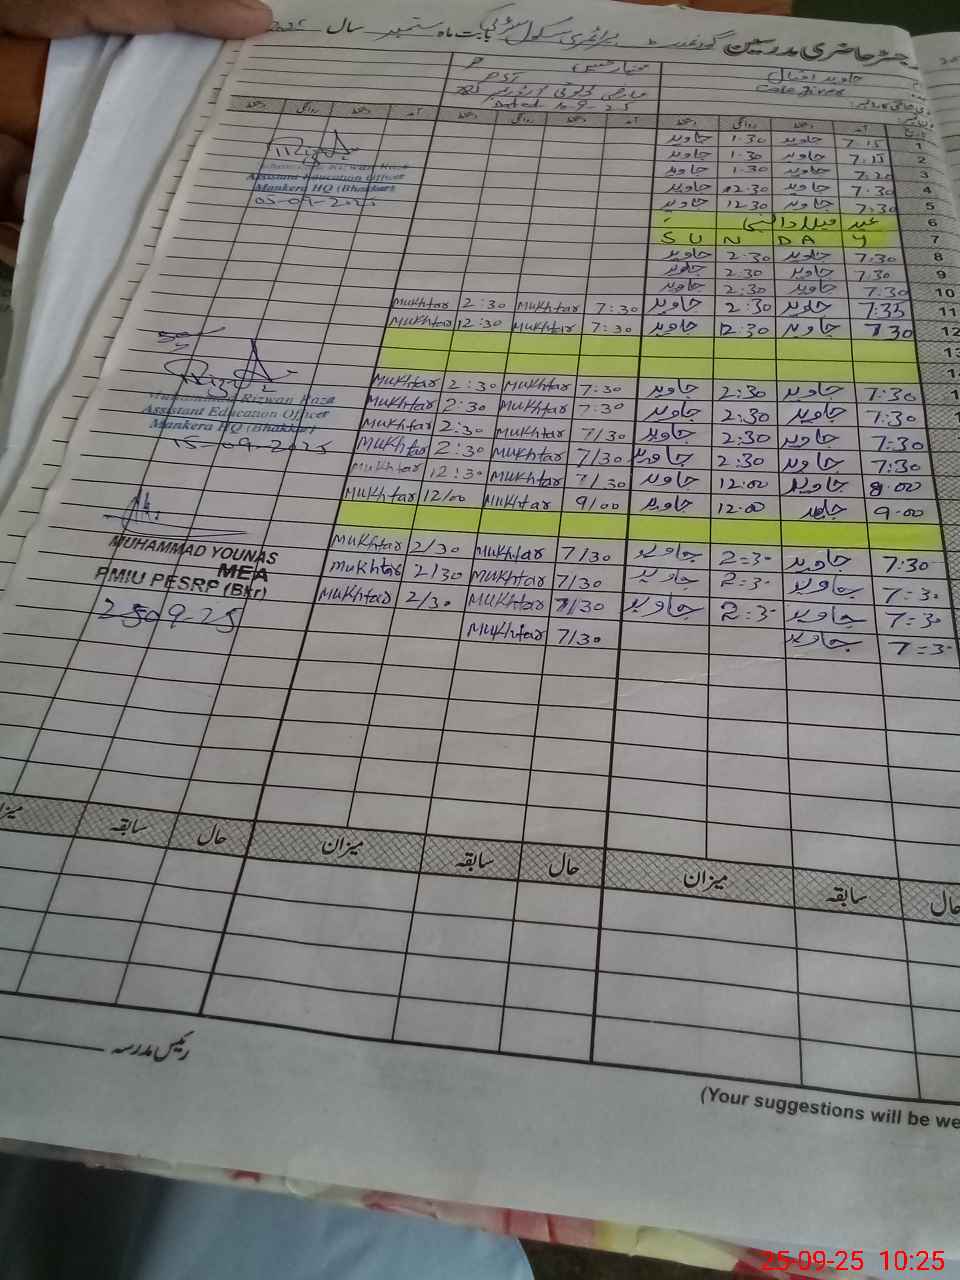 رجسٹر حاضری مدرسین گورنمنٹ پرائمری سکول بابت ماہ ستمبر سال
جاوید اقبال
مختیار حسین
Dated 10-9-25
آمد دستخط روانگی دستخط آمد دستخط روانگی دستخط
1 7:15 جاوید 1:30 جاوید
2 7:15 جاوید 1:30 جاوید
3 7:20 جاوید 1:30 جاوید
4 7:30 جاوید 12:30 جاوید
5 7:30 جاوید 12:30 جاوید
6 عید میلاد النبی
7 S U N D A Y
8 7:30 جاوید 2:30 جاوید
9 7:30 جاوید 2:30 جاوید
10 7:30 جاوید 2:30 جاوید
11 7:35 جاوید 2:30 جاوید 7:30 Mukhtar 2:30 Mukhtar
12 7:30 جاوید 12:30 جاوید 7:30 Mukhtar 12:30 Mukhtar
13
7:30 جاوید 2:30 جاوید 7:30 Mukhtar 2:30 Mukhtar
7:30 جاوید 2:30 جاوید 7:30 Mukhtar 2:30 Mukhtar
7:30 جاوید 2:30 جاوید 7/30 Mukhtar 2:30 Mukhtar
7:30 جاوید 2:30 جاوید 7/30 Mukhtar 2:30 Mukhtar
8:00 جاوید 12:00 جاوید 7/30 Mukhtar 12:30 Mukhtar
9:00 جاوید 12:00 جاوید 9/00 Mukhtar 12/00 Mukhtar
7:30 جاوید 2:30 جاوید 7/30 Mukhtar 2/30 Mukhtar
7:30 جاوید 2:30 جاوید 7/30 Mukhtar 2/30 Mukhtar
7:30 جاوید 2:30 جاوید 7/30 Mukhtar 2/30 Mukhtar
7:30 جاوید 7/30 Mukhtar
Muhammad Rizwan Raza
Assistant Education Officer
Mankera HQ (Bhakkar)
05-09-2025
Muhammad Rizwan Raza
Assistant Education Officer
Mankera HQ (Bhakkar)
15-09-2025
MUHAMMAD YOUNAS
MEA
PMIU PESRP (Bkr)
25 09-25
حال سابقہ میزان حال سابقہ میزان حال سابقہ میزان
رئیس مدرسہ
(Your suggestions will be we
25-09-25 10:25